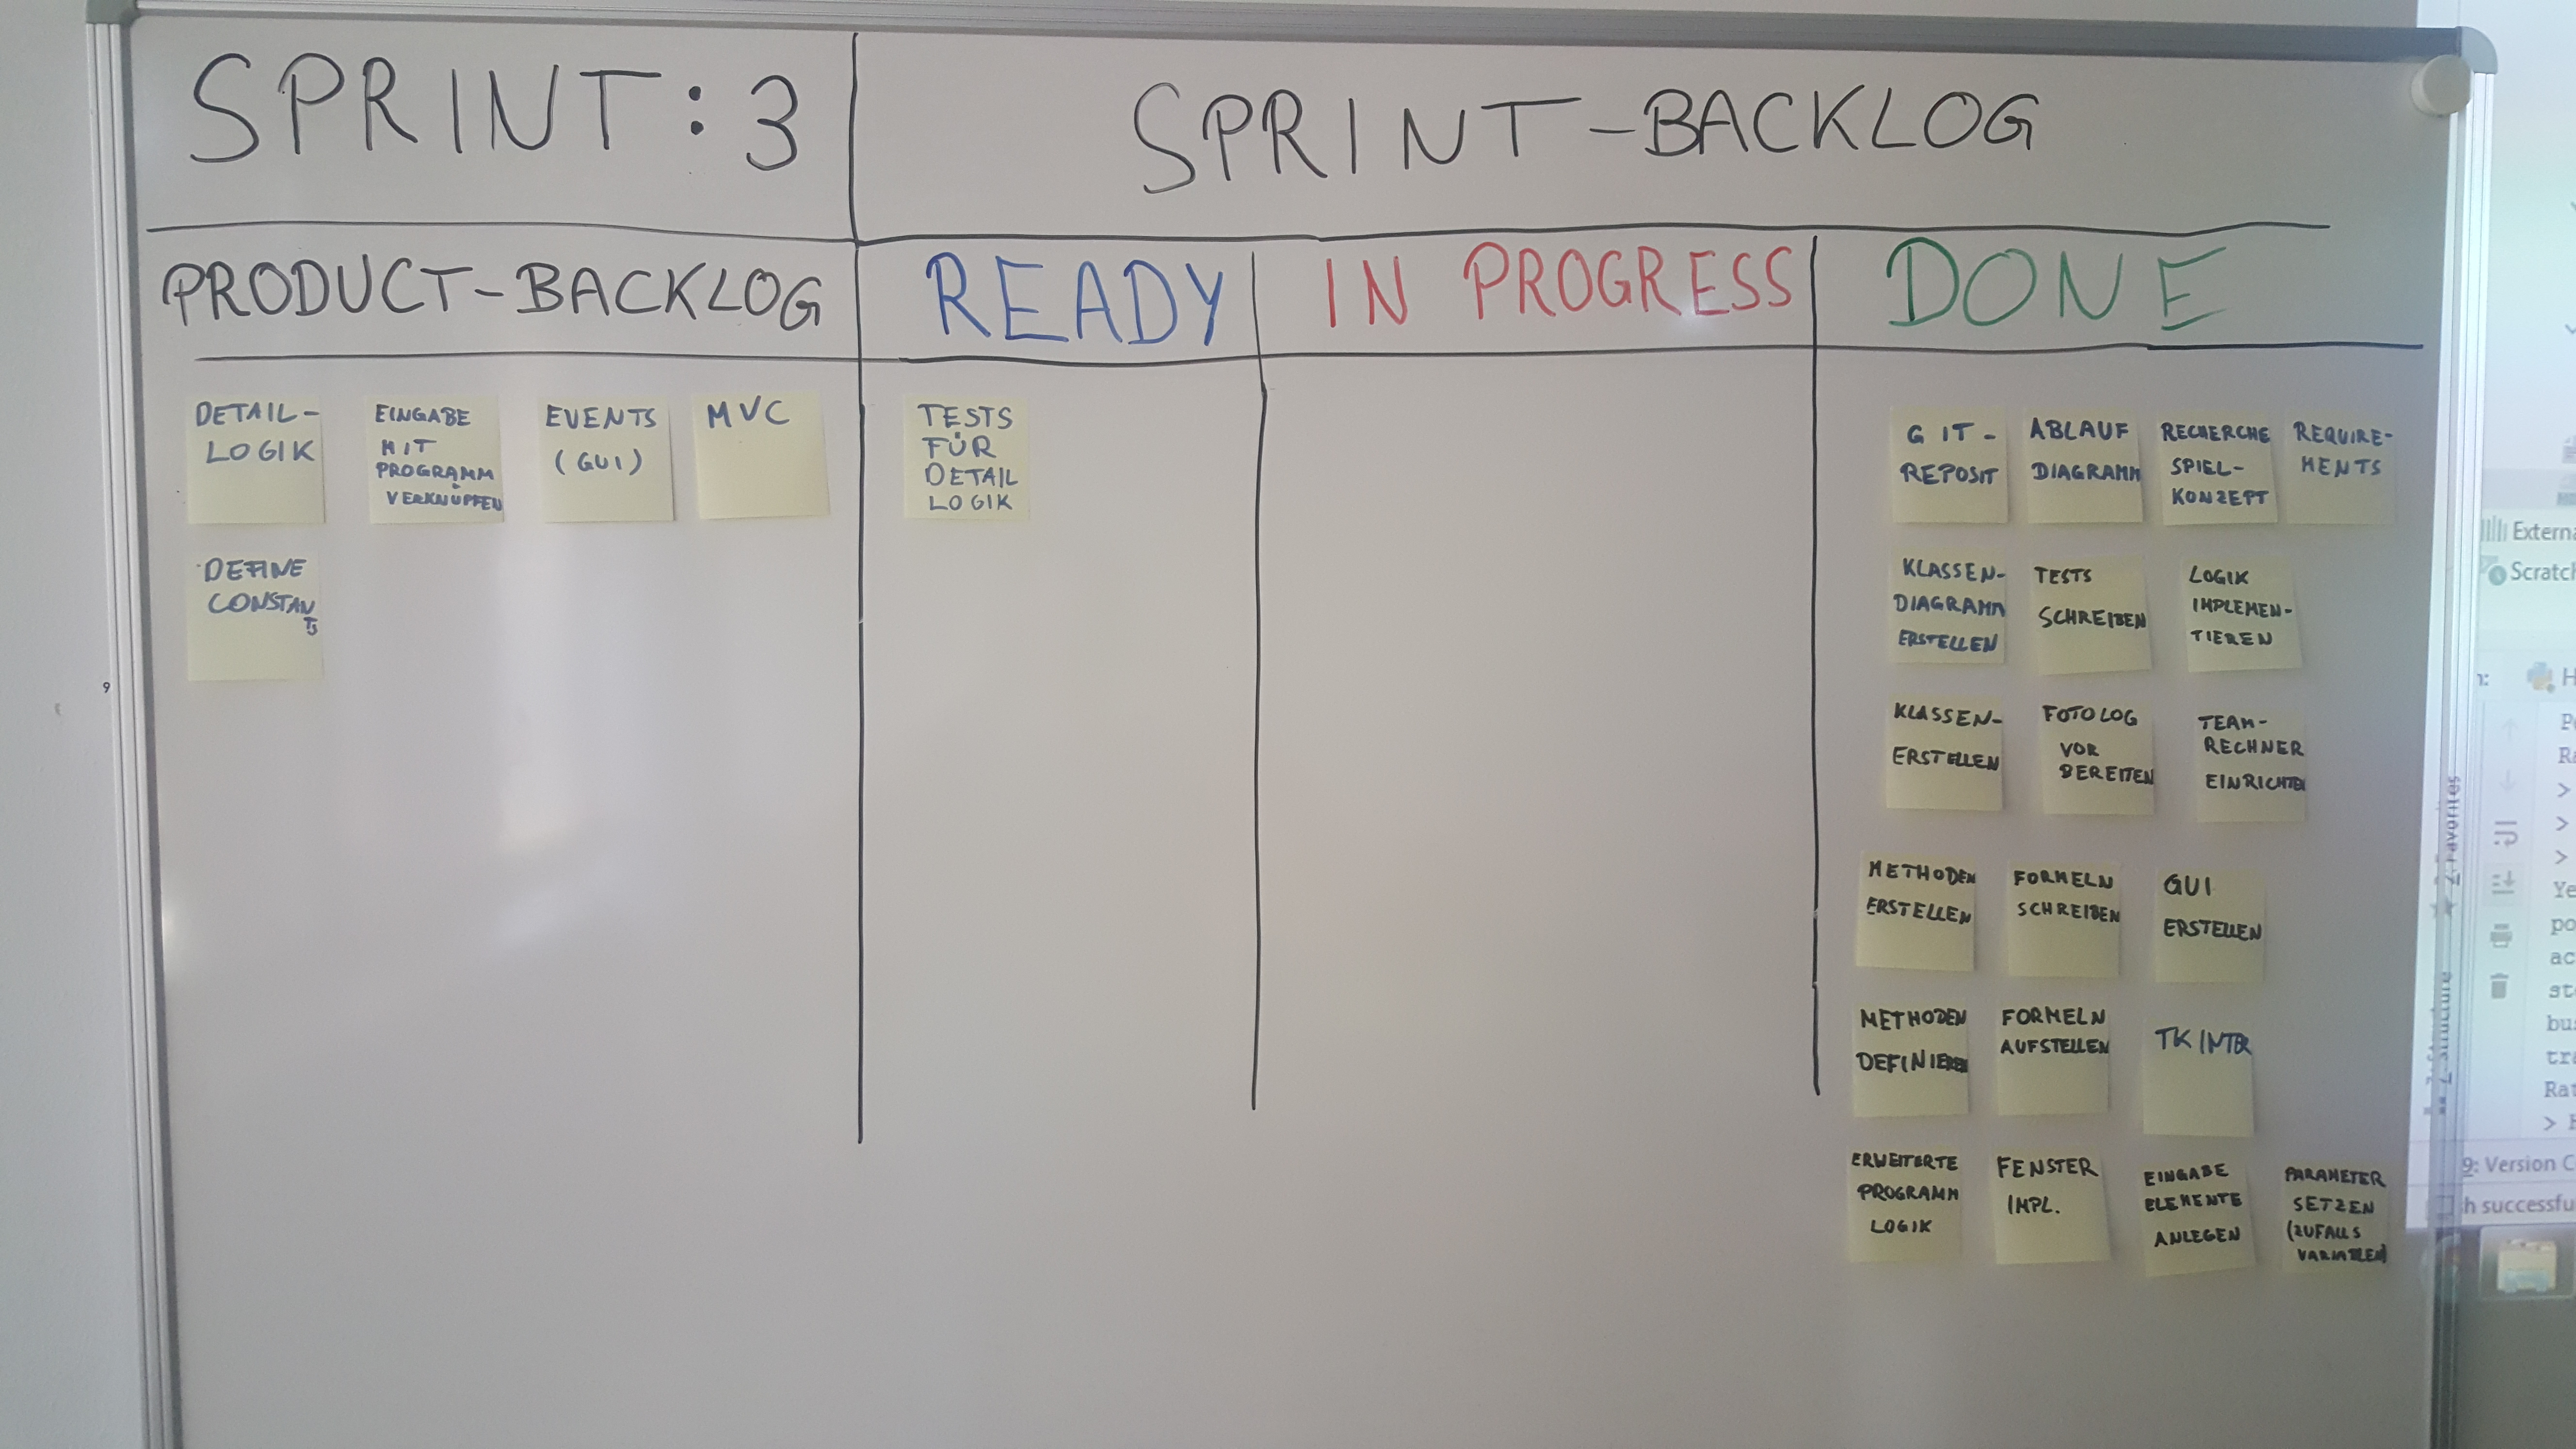 SPRINT: 3
SPRINT-BACKLOG
PRODUCT-BACKLOG
READY
IN PROGRESS
DONE
DETAIL-
LOGIK
EINGABE
MIT
PROGRAMM
VERKNÜPFEN
EVENTS
(GUI)
MVC
DEFINE
CONSTAN
TS
TESTS
FÜR
DETAIL
LOGIK
GIT-
REPOSIT
ABLAUF
DIAGRAMM
RECHERCHE
SPIEL-
KONZEPT
REQUIRE-
MENTS
KLASSEN-
DIAGRAMM
ERSTELLEN
TESTS
SCHREIBEN
LOGIK
IMPLEMEN-
TIEREN
KLASSEN-
ERSTELLEN
FOTOLOG
VOR
BEREITEN
TEAM-
RECHNER
EINRICHTEN
METHODEN
ERSTELLEN
FORMELN
SCHREIBEN
GUI
ERSTELLEN
METHODEN
DEFINIEREN
FORMELN
AUFSTELLEN
TKINTER
ERWEITERTE
PROGRAMM
LOGIK
FENSTER
IMPL.
EINGABE
ELEMENTE
ANLEGEN
PARAMETER
SETZEN
(ZUFALLS
VARIABLEN)
Extern
Scratch
2: Favorites
Structure
9: Version C
h successfu
9